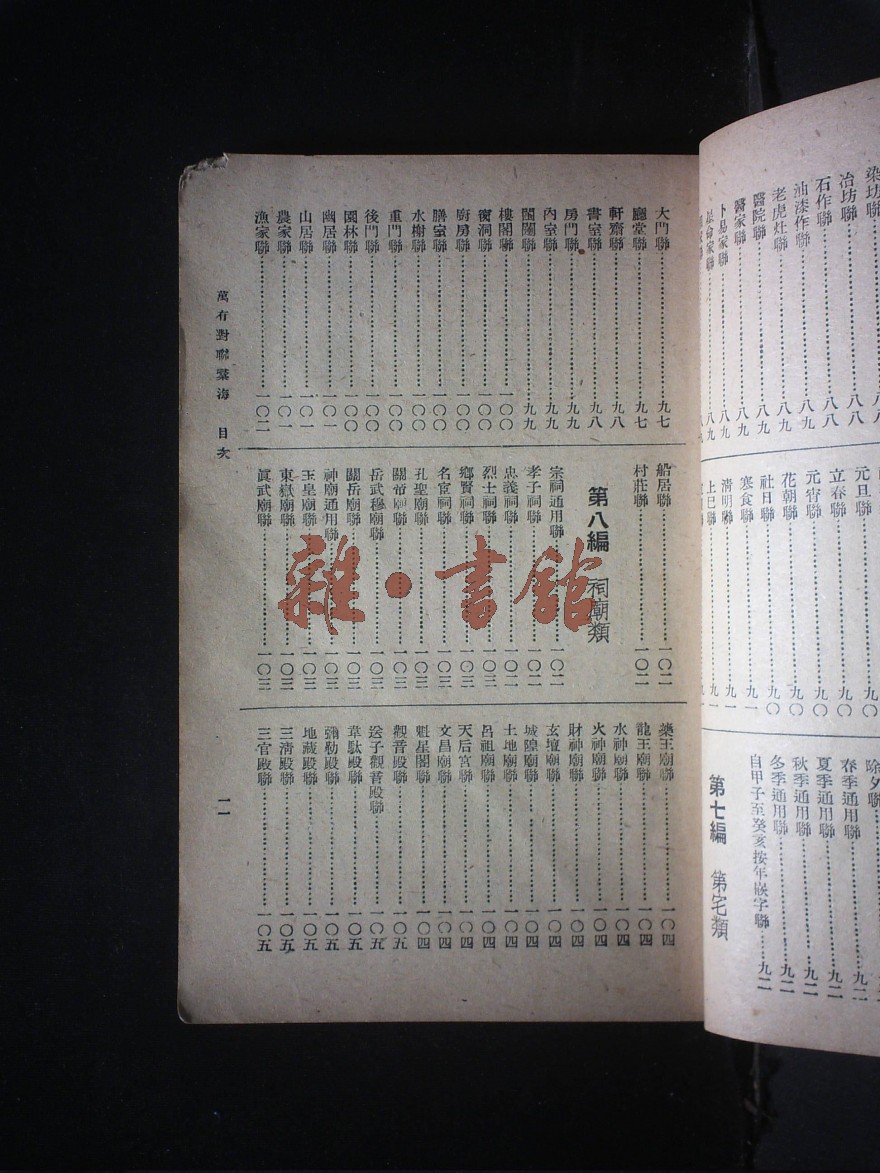 染坊聯
冶坊聯……八八
石作聯……八八
油漆作聯……八八
老虎灶聯……八九
醫院聯……八九
醫家聯……八九
卜易家聯……八九
元旦聯……九〇
立春聯……九〇
元宵聯……九〇
花朝聯……九〇
社日聯……九〇
寒食聯……九一
清明聯……九一
上巳聯……九一
除夕聯
春季通用聯……九二
夏季通用聯……九二
秋季通用聯……九二
冬季通用聯……九二
自甲子至癸亥按年嵌字聯……九二
第七編 第宅類
大門聯……九七
廳堂聯……九七
軒齋聯……九八
書室聯……九八
房門聯……九九
內室聯……九九
閨闥聯……九九
樓閣聯……一〇〇
窗洞聯……一〇〇
廚房聯……一〇〇
膳室聯……一〇〇
水榭聯……一〇〇
重門聯……一〇〇
後門聯……一〇〇
園林聯……一〇〇
幽居聯……一〇一
山居聯……一〇一
農家聯……一〇一
漁家聯……一〇二
船居聯……一〇二
村莊聯……一〇二
第八編 祠廟類
宗祠通用聯……一〇二
孝子祠聯……一〇二
忠義祠聯……一〇二
烈士祠聯……一〇三
鄉賢祠聯……一〇三
名宦祠聯……一〇三
孔聖廟聯……一〇三
關帝祠聯……一〇三
岳武穆廟聯……一〇三
關岳廟聯……一〇三
神廟通用聯……一〇三
玉皇廟聯……一〇三
東嶽廟聯……一〇三
眞武廟聯……一〇三
藥王廟聯……一〇四
龍王廟聯……一〇四
水神廟聯……一〇四
火神廟聯……一〇四
財神廟聯……一〇四
玄壇廟聯……一〇四
城隍廟聯……一〇四
土地廟聯……一〇四
呂祖廟聯……一〇四
天后宮聯……一〇四
文昌廟聯……一〇四
魁星閣聯……一〇四
觀音殿聯……一〇五
送子觀音殿聯……一〇五
韋馱殿聯……一〇五
彌勒殿聯……一〇五
地藏殿聯……一〇五
三清殿聯……一〇五
三官殿聯……一〇五
萬有對聯叢海 目次
一一
雜·書館